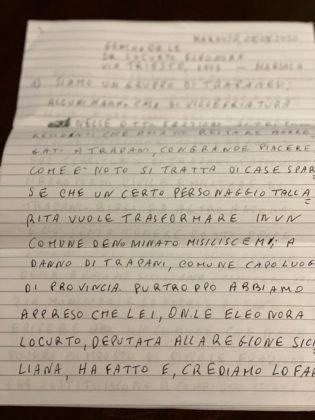 MARSALA, 05.05.2020
ON.LE
DR. LOCURTO ELEONORA
VIA TRIESTE, - MARSALA
1) SIAMO UN GRUPPO DI TRAPANESI;
ALCUNI HANNO CASA DI VILLEGGIATURA
NELLE OTTO FRAZIONI
RESIDENTI CHE RESTARE
GATI A TRAPANI, CON GRANDE PIACERE.
COME È NOTO SI TRATTA DI CASE SPAR
SE CHE UN CERTO PERSONAGGIO TALLA
RITA VUOLE TRASFORMARE IN UN
COMUNE DENOMINATO MISILISCEMI; A
DANNO DI TRAPANI, COMUNE CAPOLUOG
DI PROVINCIA. PURTROPPO ABBIAMO
APPRESO CHE LEI, ON.LE ELEONORA
LOCURTO, DEPUTATA ALLA REGIONE SICI
LIANA, HA FATTO E, CREDIAMO LO FAR